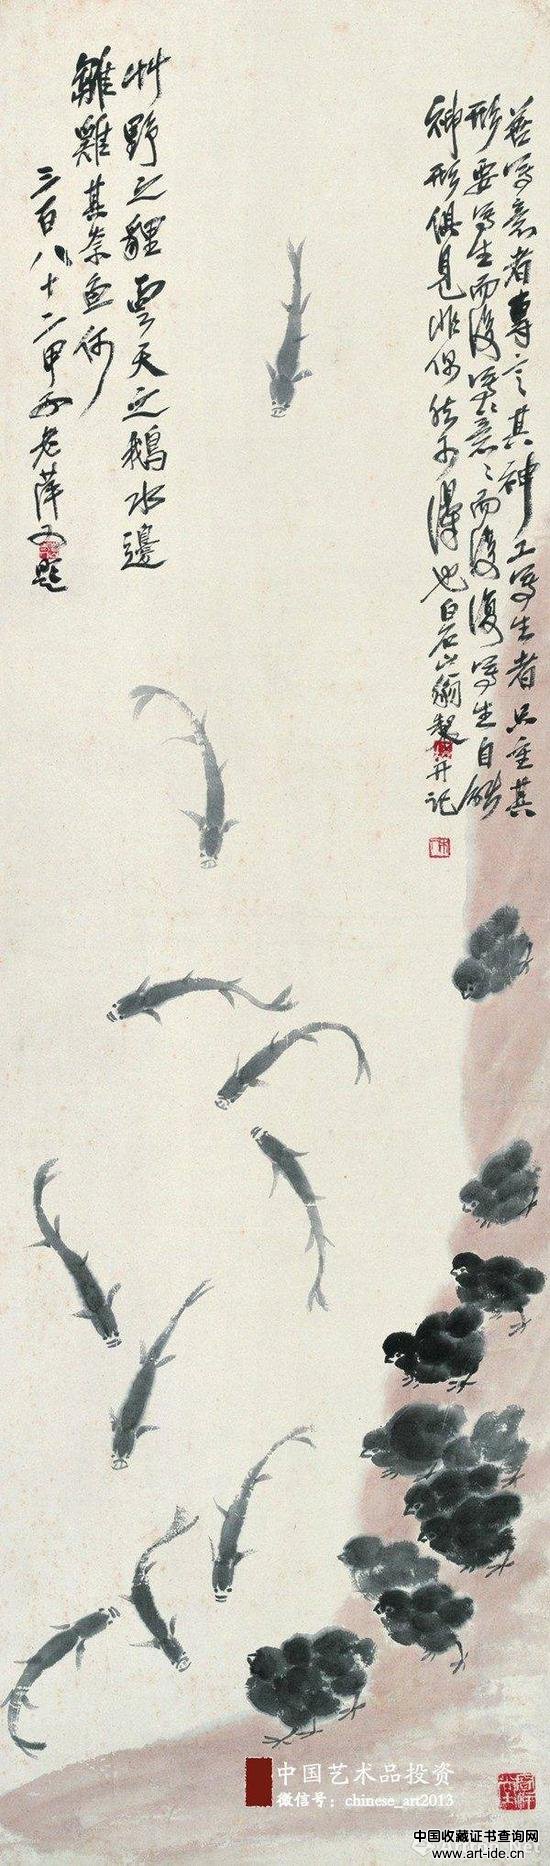 善写意者専言其神工写生者只重其
形要写生而後写意＝而後復写生自能
神形俱見非偶然可得也白石山翁製并记
艸野之貍雲天之鵝水邊
雛雞其奈魚何
三百八十二甲子老萍又題
中国艺术品投资
微信号：chinese_art2013
中国收藏证书查询网
www.art-ide.cn